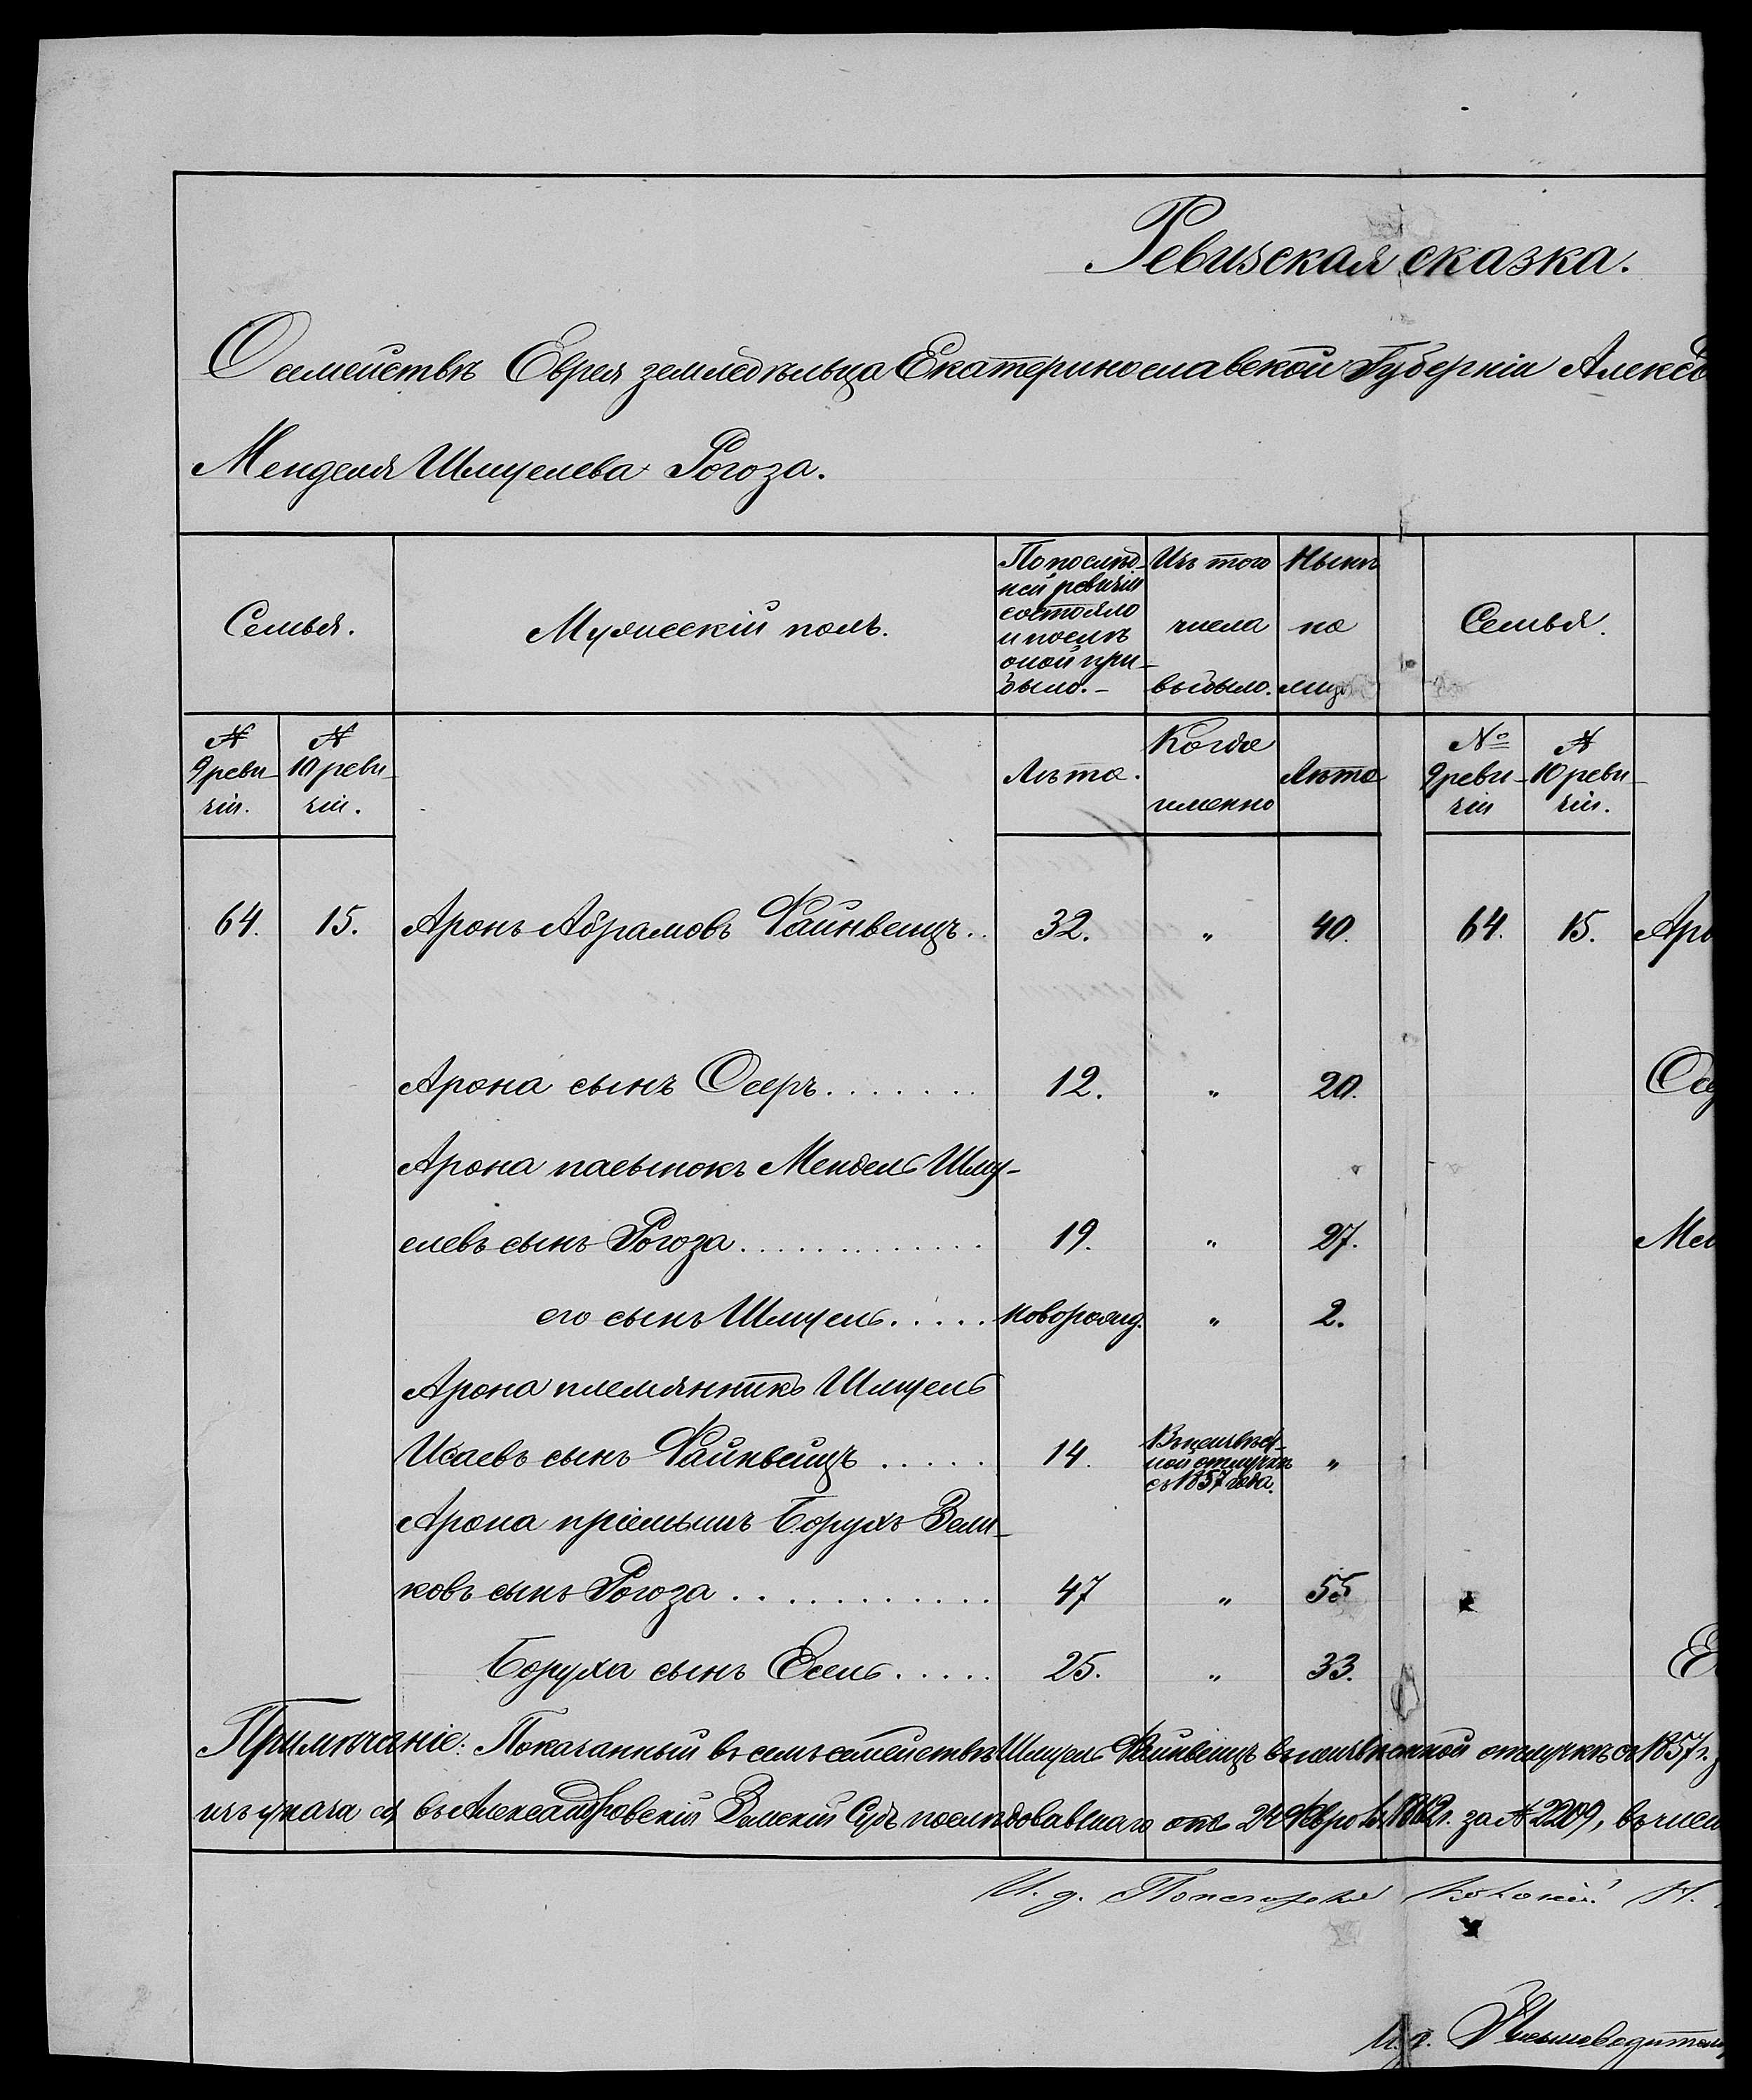 Ревизская сказка.
О семействѣ Еврея земледѣльца Екатеринославской Губерніи Алексо
Менделя Шмуелева Рогоза.
Семья.
Мужескій полъ.
По послѣд-
ней ревизіи
состояло
и послѣ
оной при-
было.-
Изъ того
числа
выбыло.
Нынѣ
на
лицо
Семья.
№
9 реви-
зіи.
№
10 реви-
зіи.
Лѣта.
Когда
именно
Лѣта
№
9 реви-
зіи
№
10 реви-
зіи.
64. 15. Аронъ Абрамовъ Файнвейцъ.. 32. " 40. 64. 15. Аро
Арона сынъ Осеръ....... 12. " 20. Осе
Арона пасынокъ Мендель Шму-
елевъ сынъ Рогоза............. 19. " 27. Мен
его сынъ Шмуель..... новорожд. " 2.
Арона племянникъ Шмуель
Исаевъ сынъ Файнвейцъ ..... 14. Въ неизвѣст-
ной отлучкѣ
съ 1857 года. "
Арона пріемышъ Борухъ Зели-
ковъ сынъ Рогоза............ 47 " 55
Боруха сынъ Есель..... 25. " 33. Е
Примѣчаніе: Показанный въ семъ семействѣ Шмуель Файнвейцъ въ неизвѣстной отлучкѣ съ 1857 г.
изъ указа въ Александровскій Земскій Судъ послѣдовавшаго отъ 1862 г. за № 2209, въ числ
И. д. Попечителя Колоніи
И. д. Письмоводитель